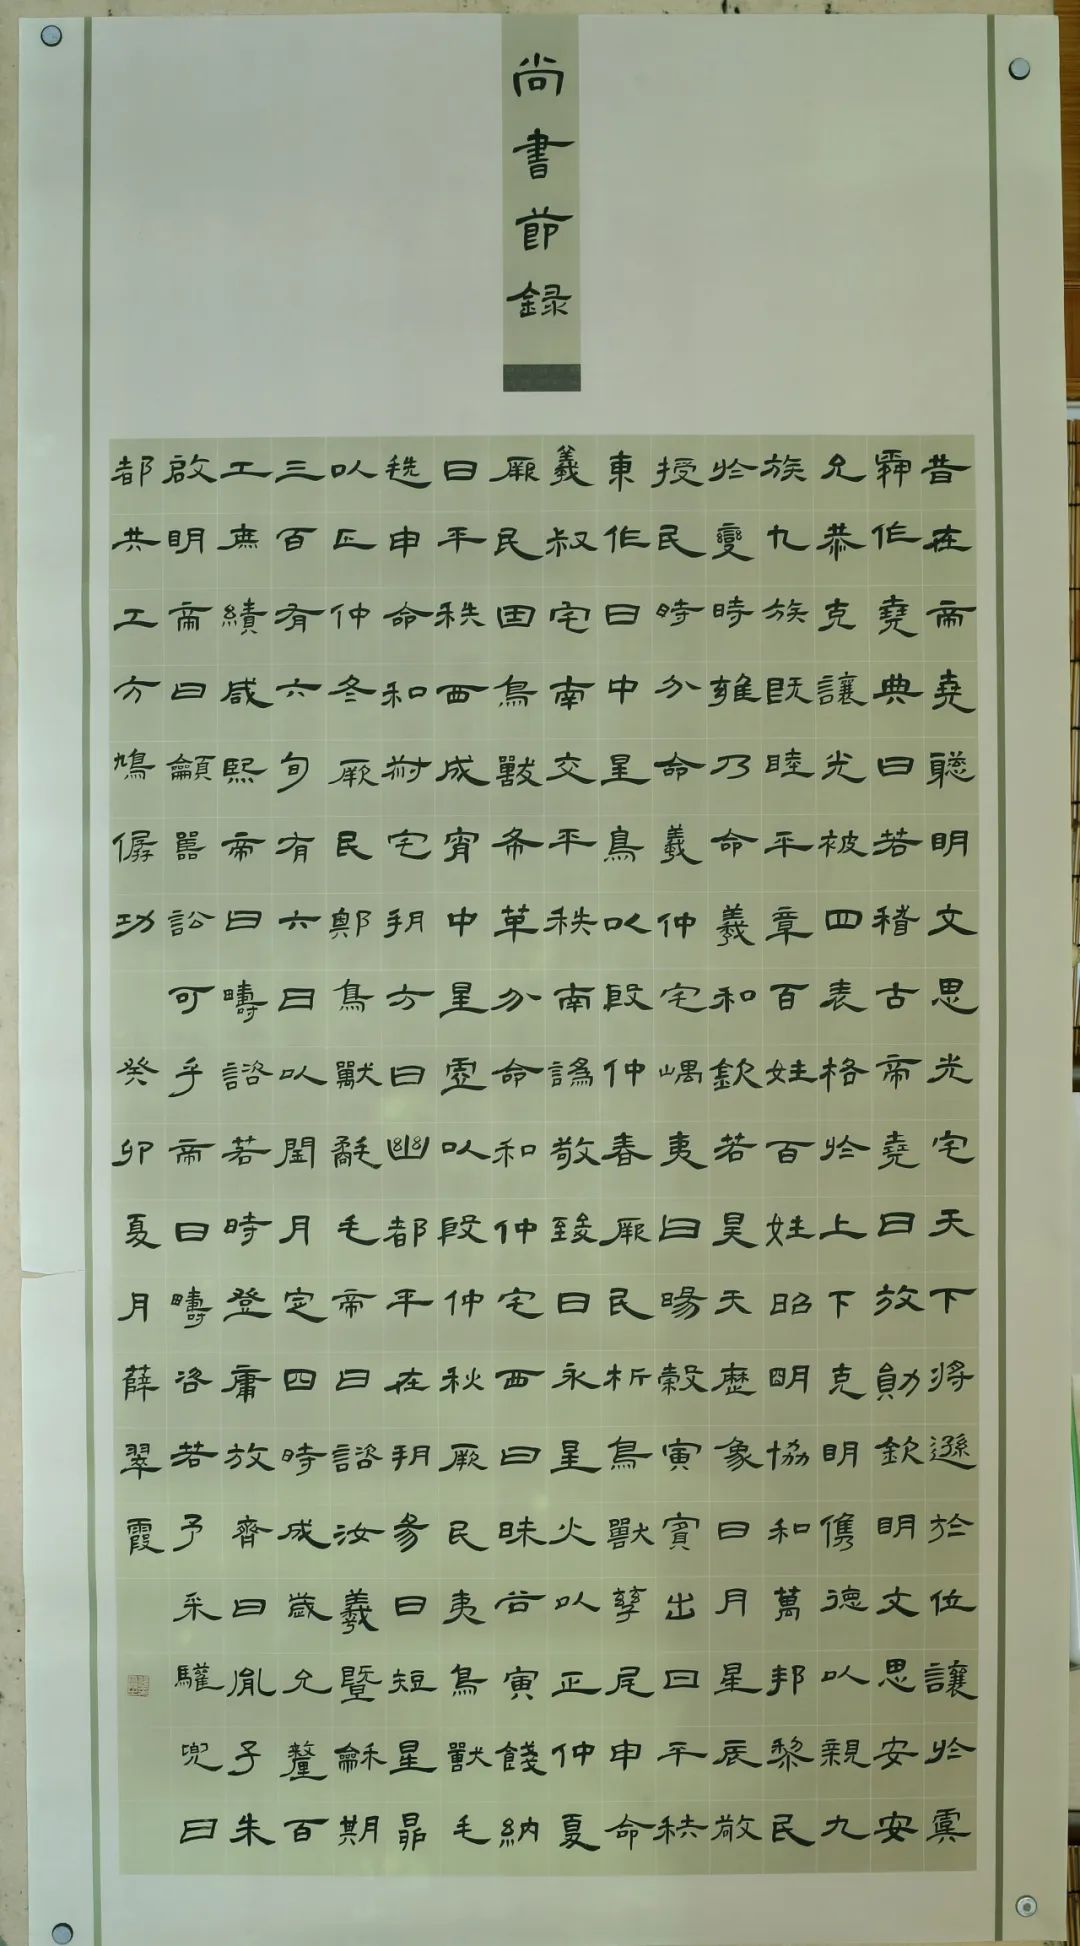 尚書節錄
昔在帝堯聰明文思光宅天下將遜於位讓於虞
舜作堯典曰若稽古帝堯曰放勛欽明文思安安
允恭克讓光被四表格於上下克明儁德以親九
族九族既睦平章百姓百姓昭明協和萬邦黎民
於變時雍乃命羲和欽若昊天歷象日月星辰敬
授民時分命羲仲宅嵎夷曰暘穀寅賓出日平秩
東作日中星鳥以殷仲春厥民析鳥獸孳尾申命
羲叔宅南交平秩南譌敬致日永星火以正仲夏
厥民因鳥獸希革分命和仲宅西曰昧谷寅餞納
日平秩西成宵中星虛以殷仲秋厥民夷鳥獸毛
毨申命和叔宅朔方曰幽都平在朔易日短星昴
以正仲冬厥民隩鳥獸氄毛帝曰諮汝羲暨龢期
三百有六旬有六日以閏月定四時成歲允釐百
工庶績咸熙帝曰疇諮若時登庸放齊曰胤子朱
啟明帝曰籲嚚訟可乎帝曰疇諮若予采驩兜曰
都共工方鳩僝功 癸卯夏月薛翠霞